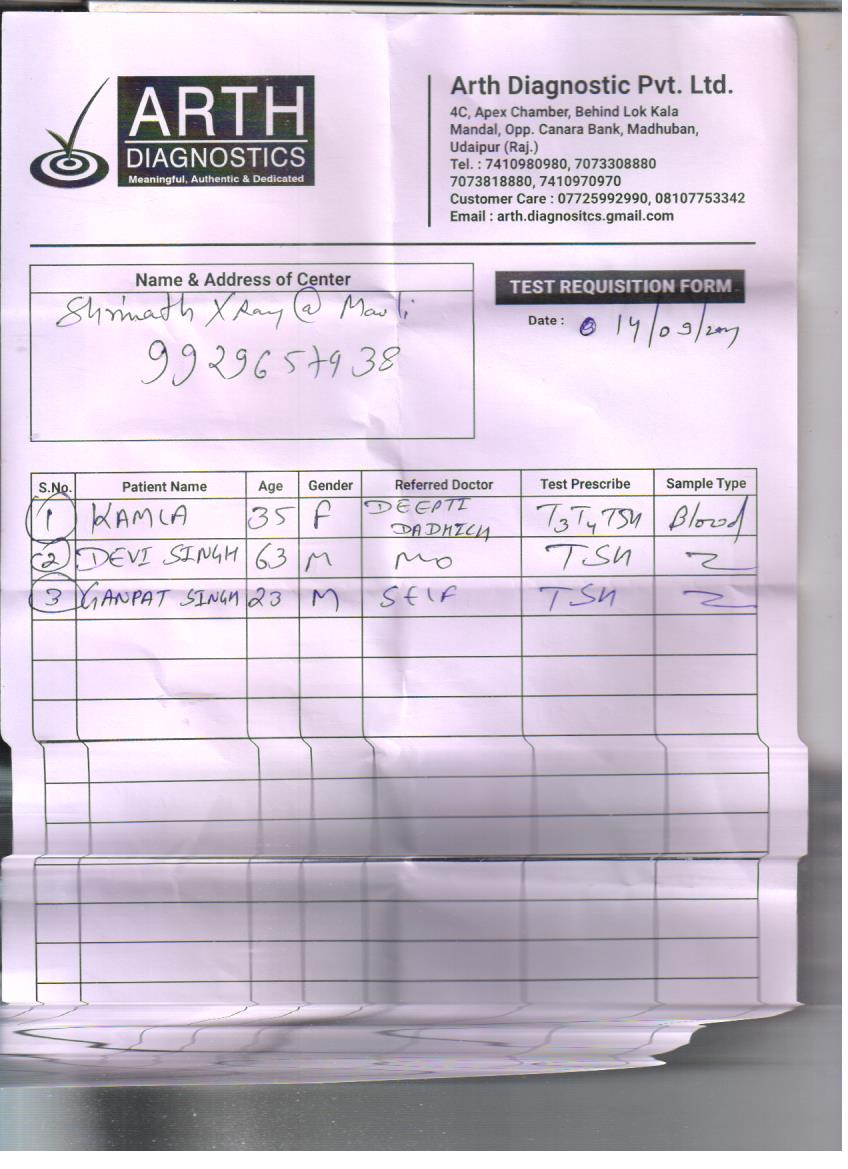 ARTH
DIAGNOSTICS
Meaningful, Authentic & Dedicated
Arth Diagnostic Pvt. Ltd.
4C, Apex Chamber, Behind Lok Kala
Mandal, Opp. Canara Bank, Madhuban,
Udaipur (Raj.)
Tel. : 7410980980, 7073308880
7073818880, 7410970970
Customer Care : 07725992990, 08107753342
Email : arth.diagnositcs.gmail.com
Name & Address of Center
Shrinath X Ray @ Mavli
9929657938
TEST REQUISITION FORM
Date : 14/09/
S.No. Patient Name Age Gender Referred Doctor Test Prescribe Sample Type
1 KAMLA 35 F DEEPTI DADHICH T3 T4 TSH Blood
2 DEVI SINGH 63 M MO TSH
3 GANPAT SINGH 23 M SELF TSH